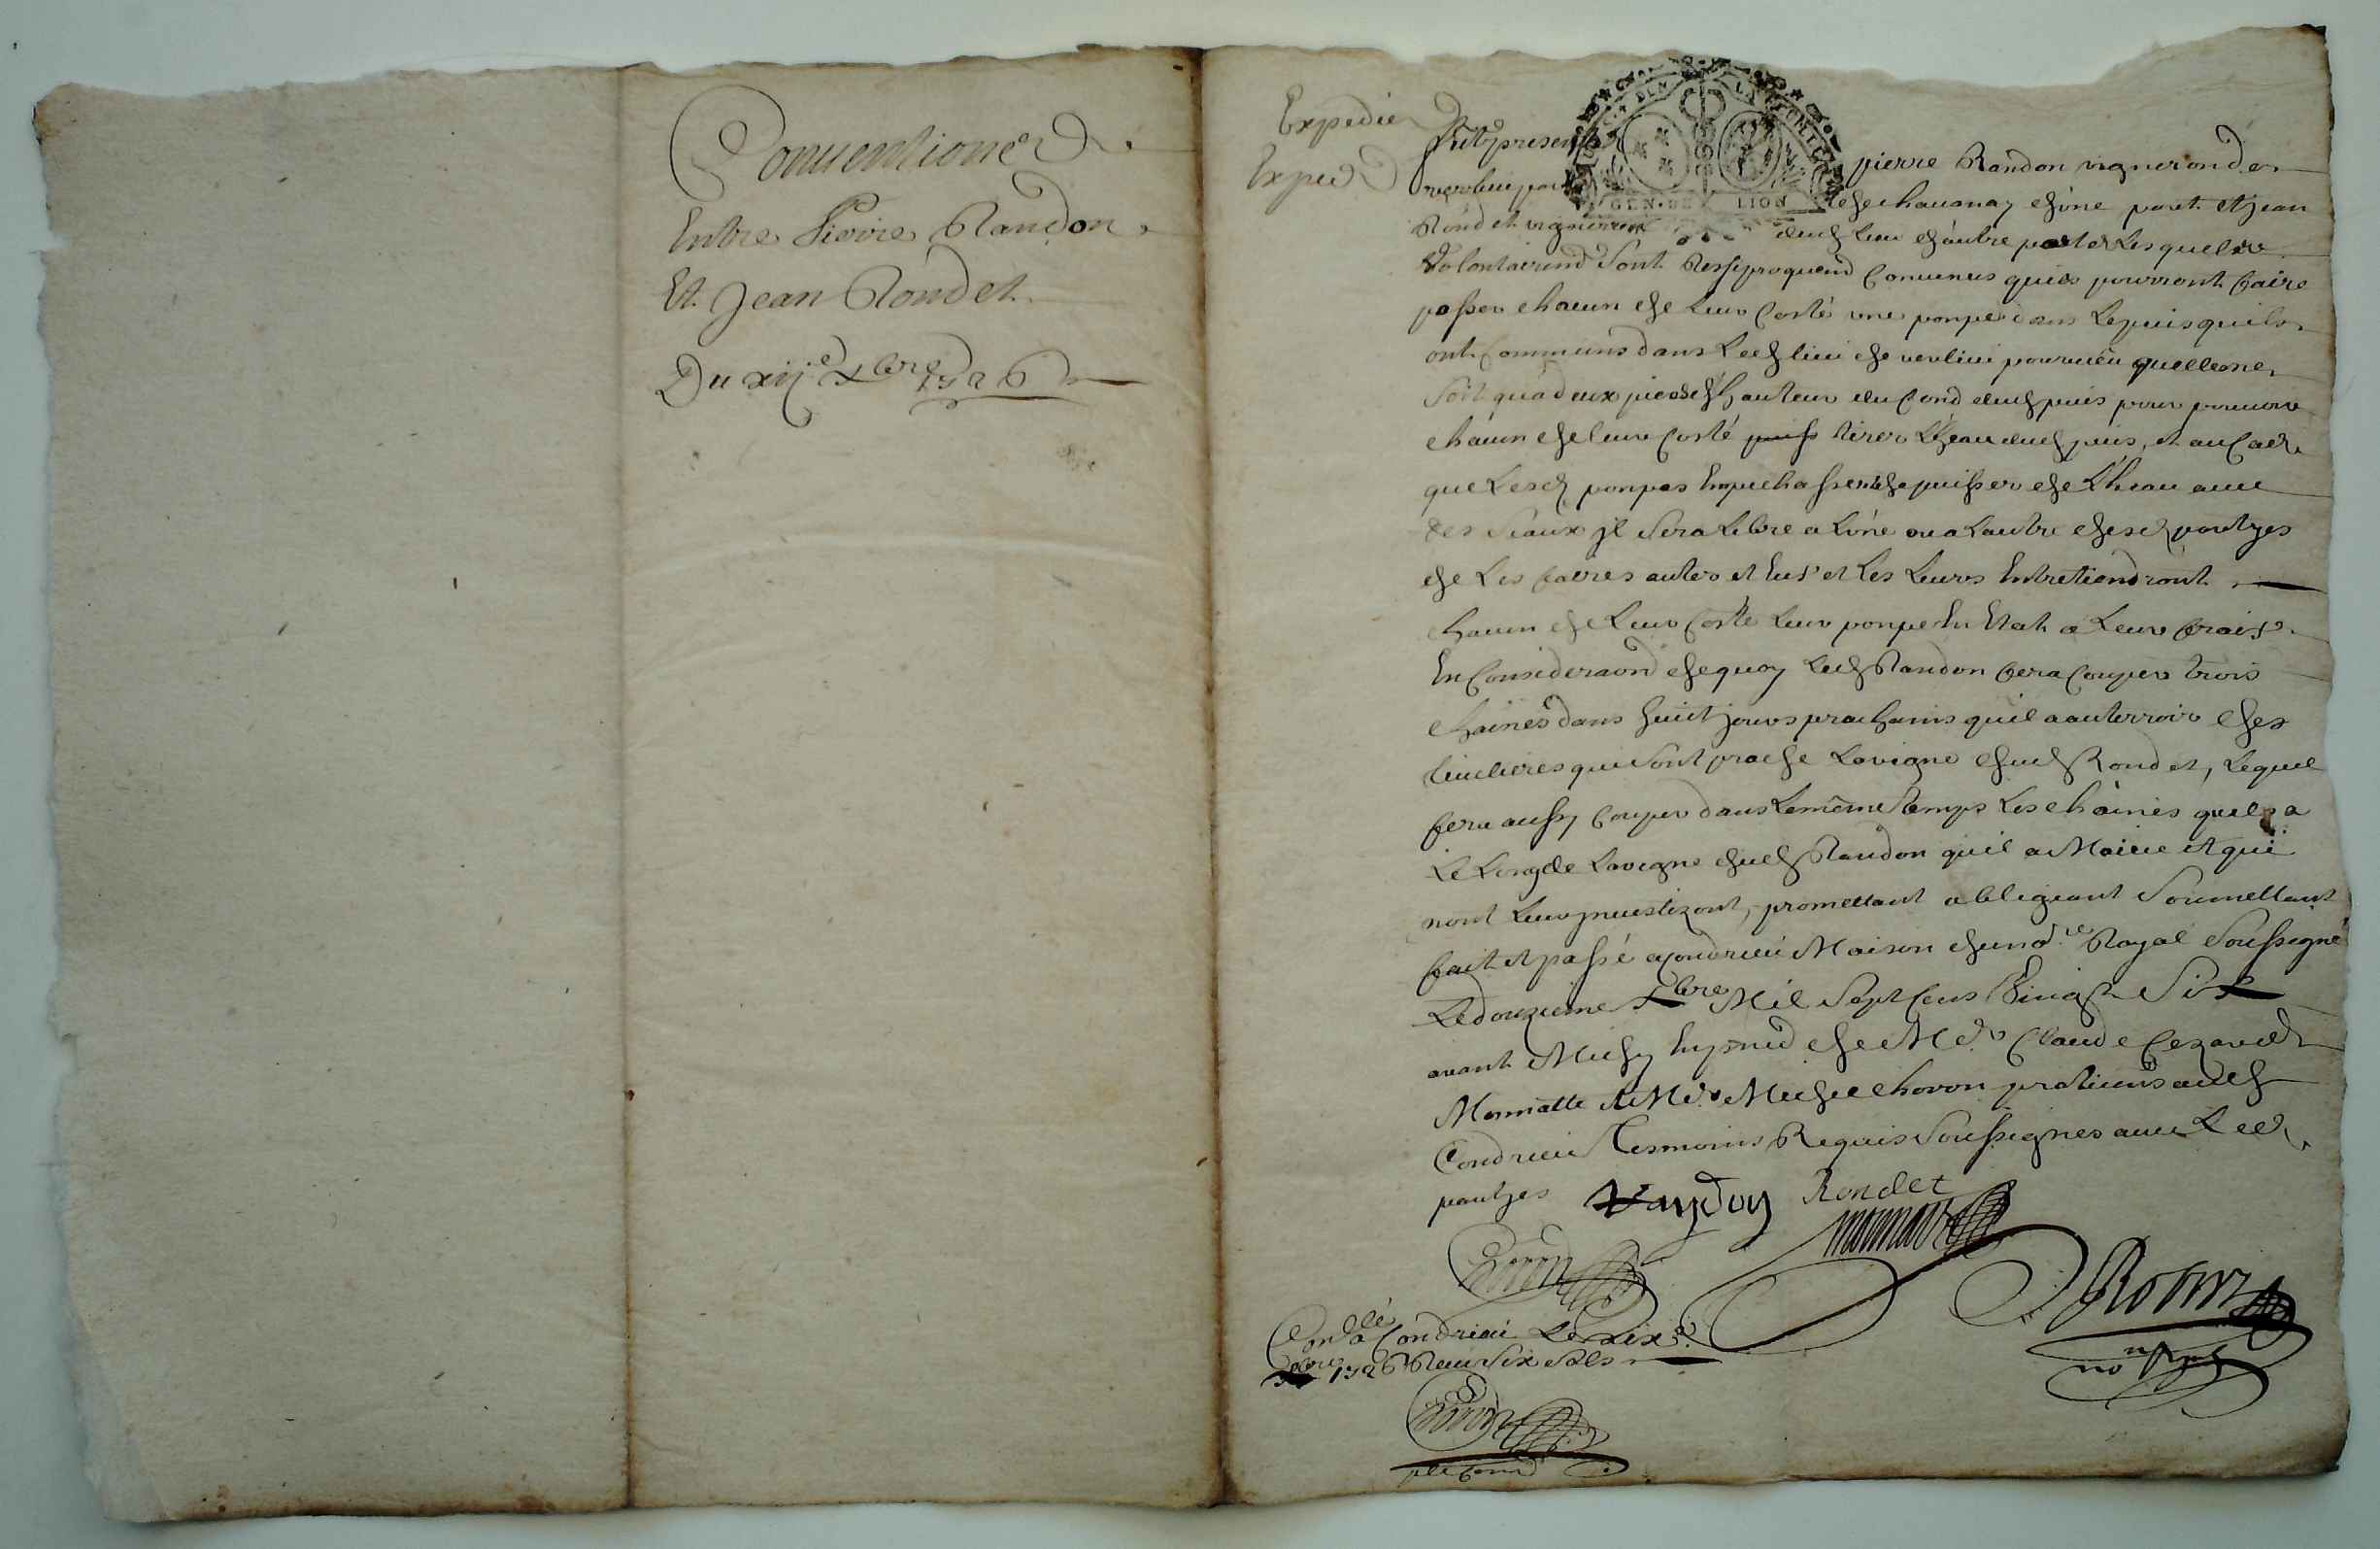 Conventions
Entre Pierre Randon
Et Jean Rondet
Du xije Xbre 1726
Expedié
Exped
GEN · DE LION
Furt presents pierre Randon vigneron de
verlieu par de chauanay d'une part et Jean
Rondet vigneron dud lieu d'autre part Lesquels
Volontairemt Sont Ressiproquemt Convenus quils pourront faire
passer chacun de Leur Costé une pompe dans Le puis quils
ont Communs dans Led lieu de verlieu pourueu quelle ne
Soit qua deux pieds d'hauteur du fond dud puis pour pouvoir
chacun de leur Costé tirer L'heau dud puis, et au Cas
que Lesd ponpes Empechassent de puisser de L'heau avec
des Seaux jl Sera Libre a L'une ou a Lautre desd partyes
de Les faires auter et Les Leurs Entretiendront
chacun de Leur Costé Leur ponpe En Etat a Leur frais
En Consideraon de quoy Led Randon fera Couper trois
chaines dans huit jours prochains quil a au terroir des
qui Sont proche La vigne dud Rondet, Lequel
fera aussy Couper dans Le meme temps Les chaines quil a
Le Long de La vigne dud Randon qu'il a et qui
promettant obligeant Soumettant
fait et passé a Condrieu Maison du nore Royal Soussigné
Le douzieme Xbre Mil Sept Cens Vingt Six
avant Midy En pnce de Mr Claude Cezard
Mormatte et Mr Michel choron praticiens aud
Condrieu Tesmoins Requis Soussignés avec Les
partyes Randon Rondet
Choron
Robin
no Ryal
Conllé a Condrieu Le dix
Xbre 1726 Reçu Six Sols